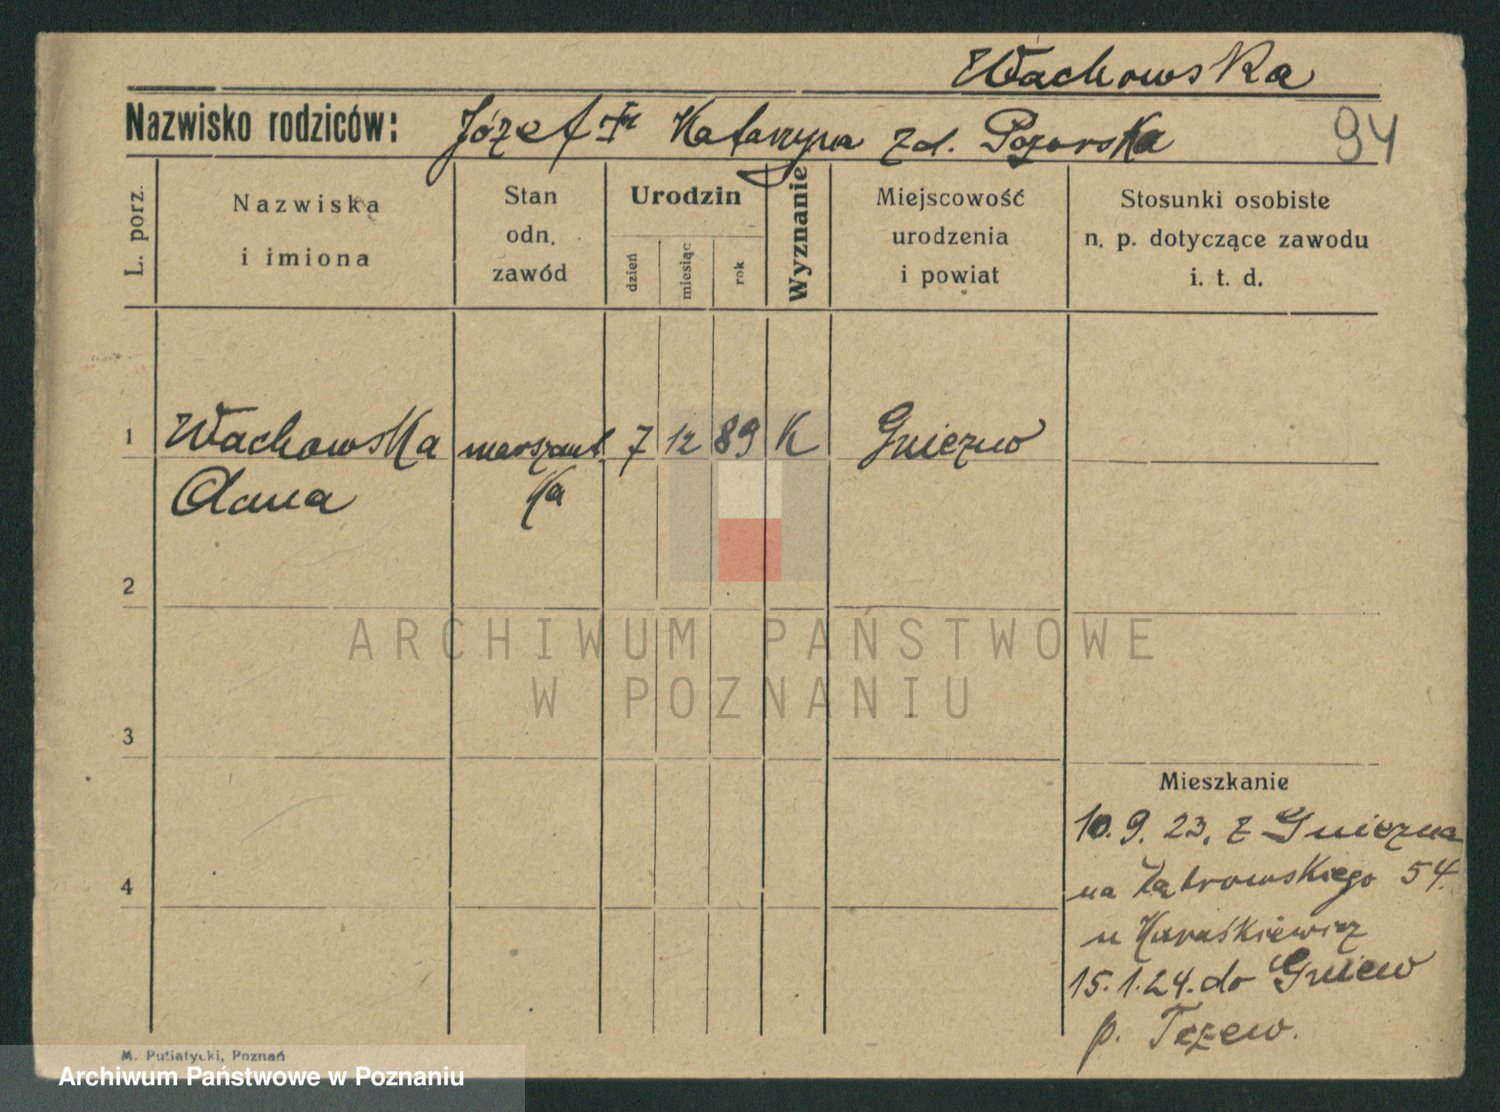 Wachowska
Nazwisko rodziców: Józef + Katarzyna zd. Pogorska
94
L. porz.
Nazwiska
i imiona
Stan
odn.
zawód
Urodzin
dzień
miesiąc
rok
Wyznanie
Miejscowość
urodzenia
i powiat
Stosunki osobiste
n. p. dotyczące zawodu
i. t. d.
1 Wachowska marszant 7 12 89 K Gniezno
Anna ka
2
ARCHIWUM PAŃSTWOWE
W POZNANIU
3
Mieszkanie
10. 9. 23. z Gniezna
4
na Dąbrowskiego 54.
u Karaśkiewicz
15. 1. 24. do Gniew
p. Tczew.
M. Putiatycki, Poznań
Archiwum Państwowe w Poznaniu